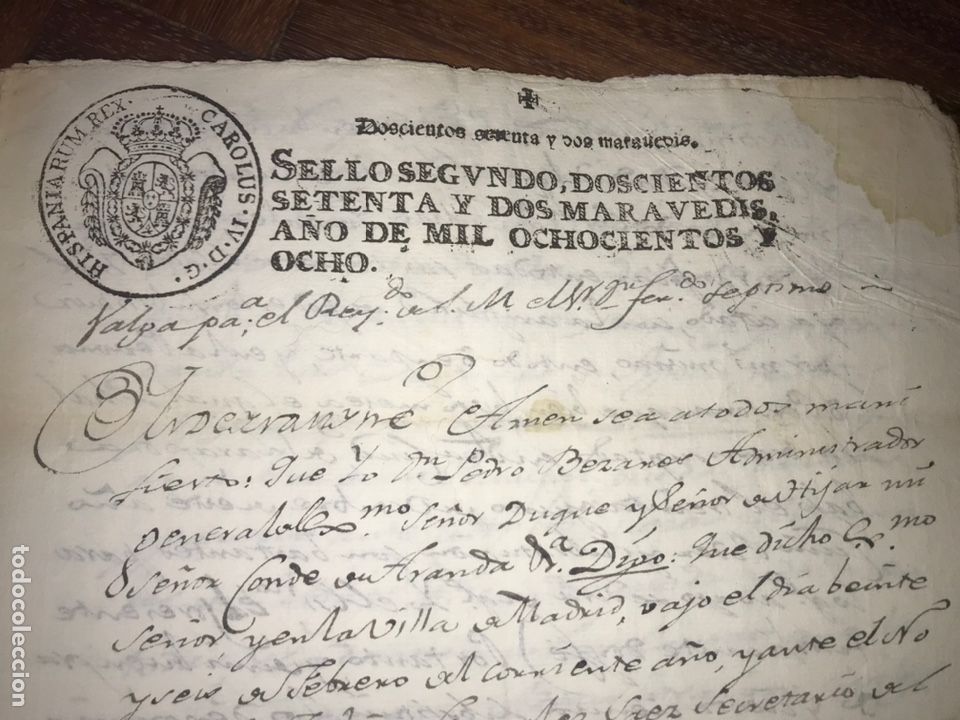 HISPANIARUM REX. CAROLUS. IV. D. G.
✠
Doscientos setenta y dos marauedis.
SELLO SEGVNDO, DOSCIENTOS
SETENTA Y DOS MARAVEDIS,
AÑO DE MIL OCHOCIENTOS Y
OCHO.
Valga pa. el Reydo. de S. M. el Sr. Dn. Ferdo. Septimo
Amen sea atodos mani
fiesto: Que Yo Dn. Pedro Bezares Administrador
General del Exmo. Señor Duque y Señor de Hijar mi
Señor Conde de Aranda &a. Digo: Que dicho Exmo
Señor y en la Villa de Madrid, vajo el dia beinte
y seis de Febrero del corriente año, y ante el No
Saez Secretario del
todocoleccion
todocoleccion